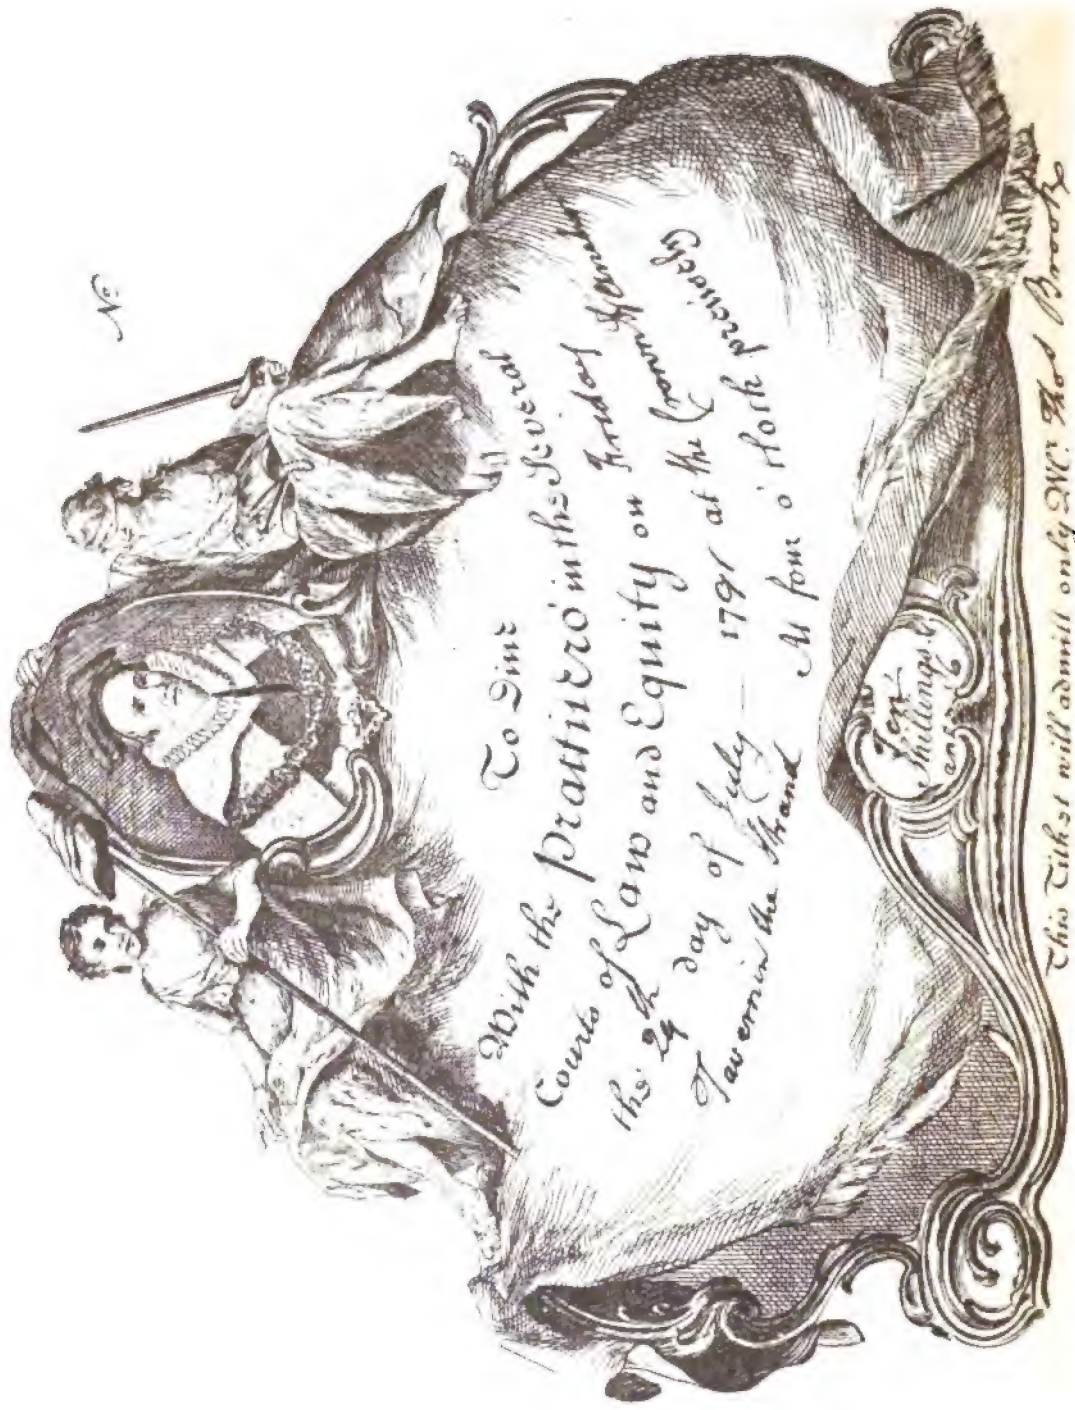 No.
To Dine
With the Practisers in the Several
Courts of Law and Equity on Friday
the 29th day of July 1791 at the Crown
Tavern in the Strand At four o'Clock precisely
Ten
Shillings
This Ticket will admitt only Mr. Thos Brooks